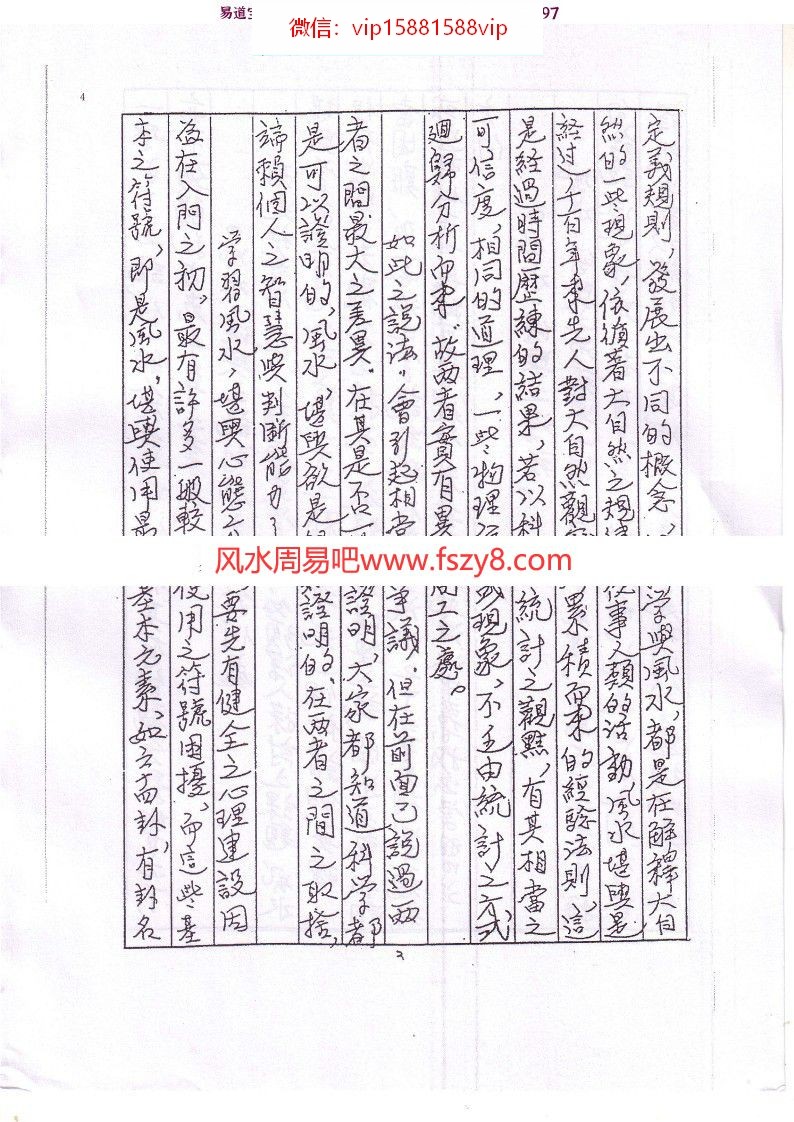 易道
97
微信：vip15881588vip
4
定義規則，發展出不同的概念，
學與風水，都是在解釋大自
然的一些現象，依循著大自然之規律
從事人類的活動，風水堪輿是
經過千百年來先人對大自然觀
累積而來的經驗法則，這
是經過時間歷練的結果，若以科
統計之觀點，有其相當之
可信度，相同的道理，一些物理
或現象，不乏由統計之方式
迴歸分析而來，故兩者實有異
同工之處。
如此之說法，會引起相當
爭議，但在前面已說過兩
者之間最大之差異。在其是不
證明，大家都知道科學都
是可以證明的，風水，堪輿欲是
證明的，在兩者之間之取捨，
端賴個人之智慧與判斷能力了
学習風水，堪輿心態
要先有健全之心理建設因
為在入門之初，最有許多一般較
使用之符號困擾，而這些基
本之符號，即是風水，堪輿使用最
基本元素，如六十四卦，有卦名
风水周易吧www.fszy8.com
3